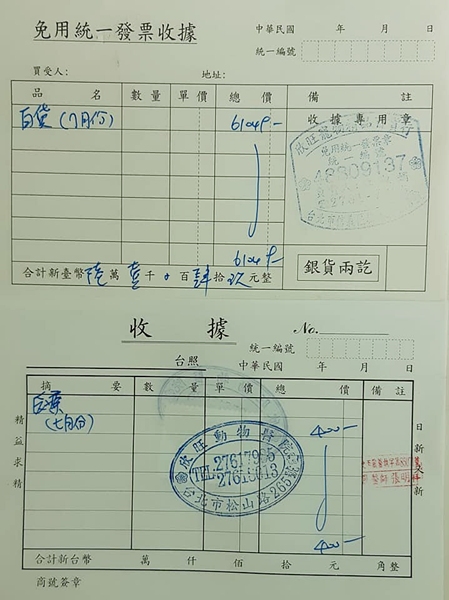 免用統一發票收據
中華民國 年 月 日
統一編號
買受人: 地址:
品 名 數 量 單 價 總 價 備 註
百貨(7月份) 61049- 收據專用章
免用統一發票章
統一編號
48809137
61049-
合計新臺幣陸萬壹千0百肆拾玖元整
銀貨兩訖
收 據
No.
統一編號
台照 中華民國 年 月 日
摘 要 數 量 單 價 總 價 備 註
(七月份) 400-
精益求精
日新又新
欣旺動物醫院
TEL:27617965
27618613
台北市松山路265號
400-
合計新台幣 萬 仟 佰 拾 元 角整
商號簽章